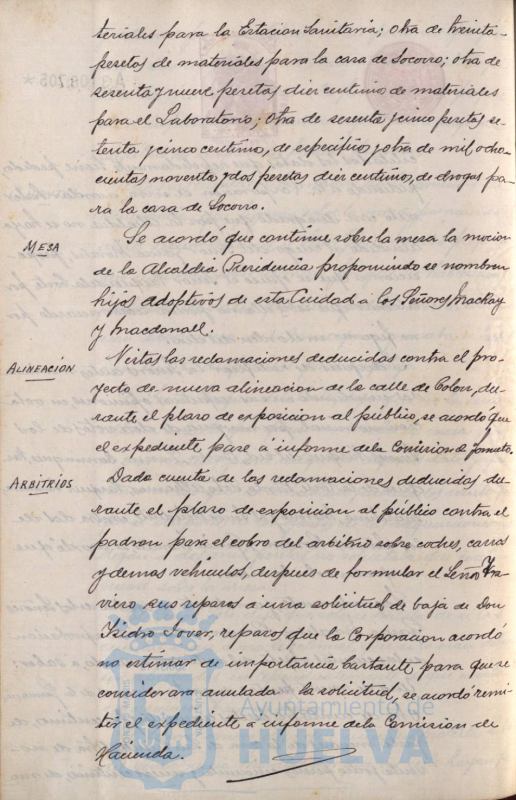 teriales para la Estacion Sanitaria; otra de treinta
pesetas de materiales para la casa de Socorro; otra de
sesenta y nueve pesetas diez centimo de materiales
para el Laboratorio; otra de sesenta y cinco pesetas se-
tenta y cinco centimo, de especifico y otra de mil ocho-
cientas noventa y dos pesetas diez centimo, de drogas pa-
ra la casa de Socorro.
MESA
Se acordó que continue sobre la mesa la mocion
de la Alcaldia Presidencia proponiendo se nombren
hijos adoptivos de esta Ciudad á los Señores Mackay
y Macdonall.
ALINEACIÓN
Vistas las reclamaciones deducidas contra el pro-
yecto de nueva alineacion de la calle de Colon, du-
rante el plazo de exposicion al público, se acordó que
el expediente pase á informe de la Comision de Fomento.
ARBITRIOS
Dada cuenta de las reclamaciones deducidas du-
rante el plazo de exposicion al público contra el
padron para el cobro del arbitrio sobre coches, carros
y demas vehiculos, despues de formular el Señor Tra-
viero sus reparos á una solicitud de baja de Don
Isidro Jover, reparos que la Corporacion acordó
no estimar de importancia bastante para que se
considerara anulada la solicitud, se acordó remi-
tir el expediente á informe de la Comision de
Hacienda.
Ayuntamiento de
HUELVA